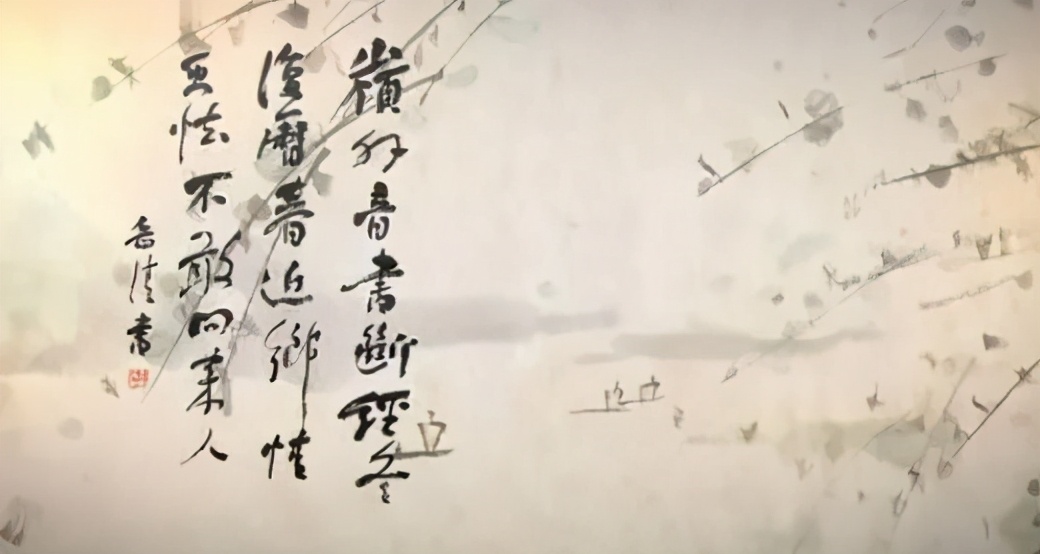 嶺外音書斷經冬
復曆春近鄉情
更怯不敢問來人
書